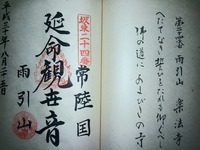 第二十四番 雨引山 楽法寺
へだてなき誓をたれも仰ぐべし
佛の道に あまびきの寺
坂東二十四番
常陸国
延命観世音
雨引山
平成三十年八月二十一日